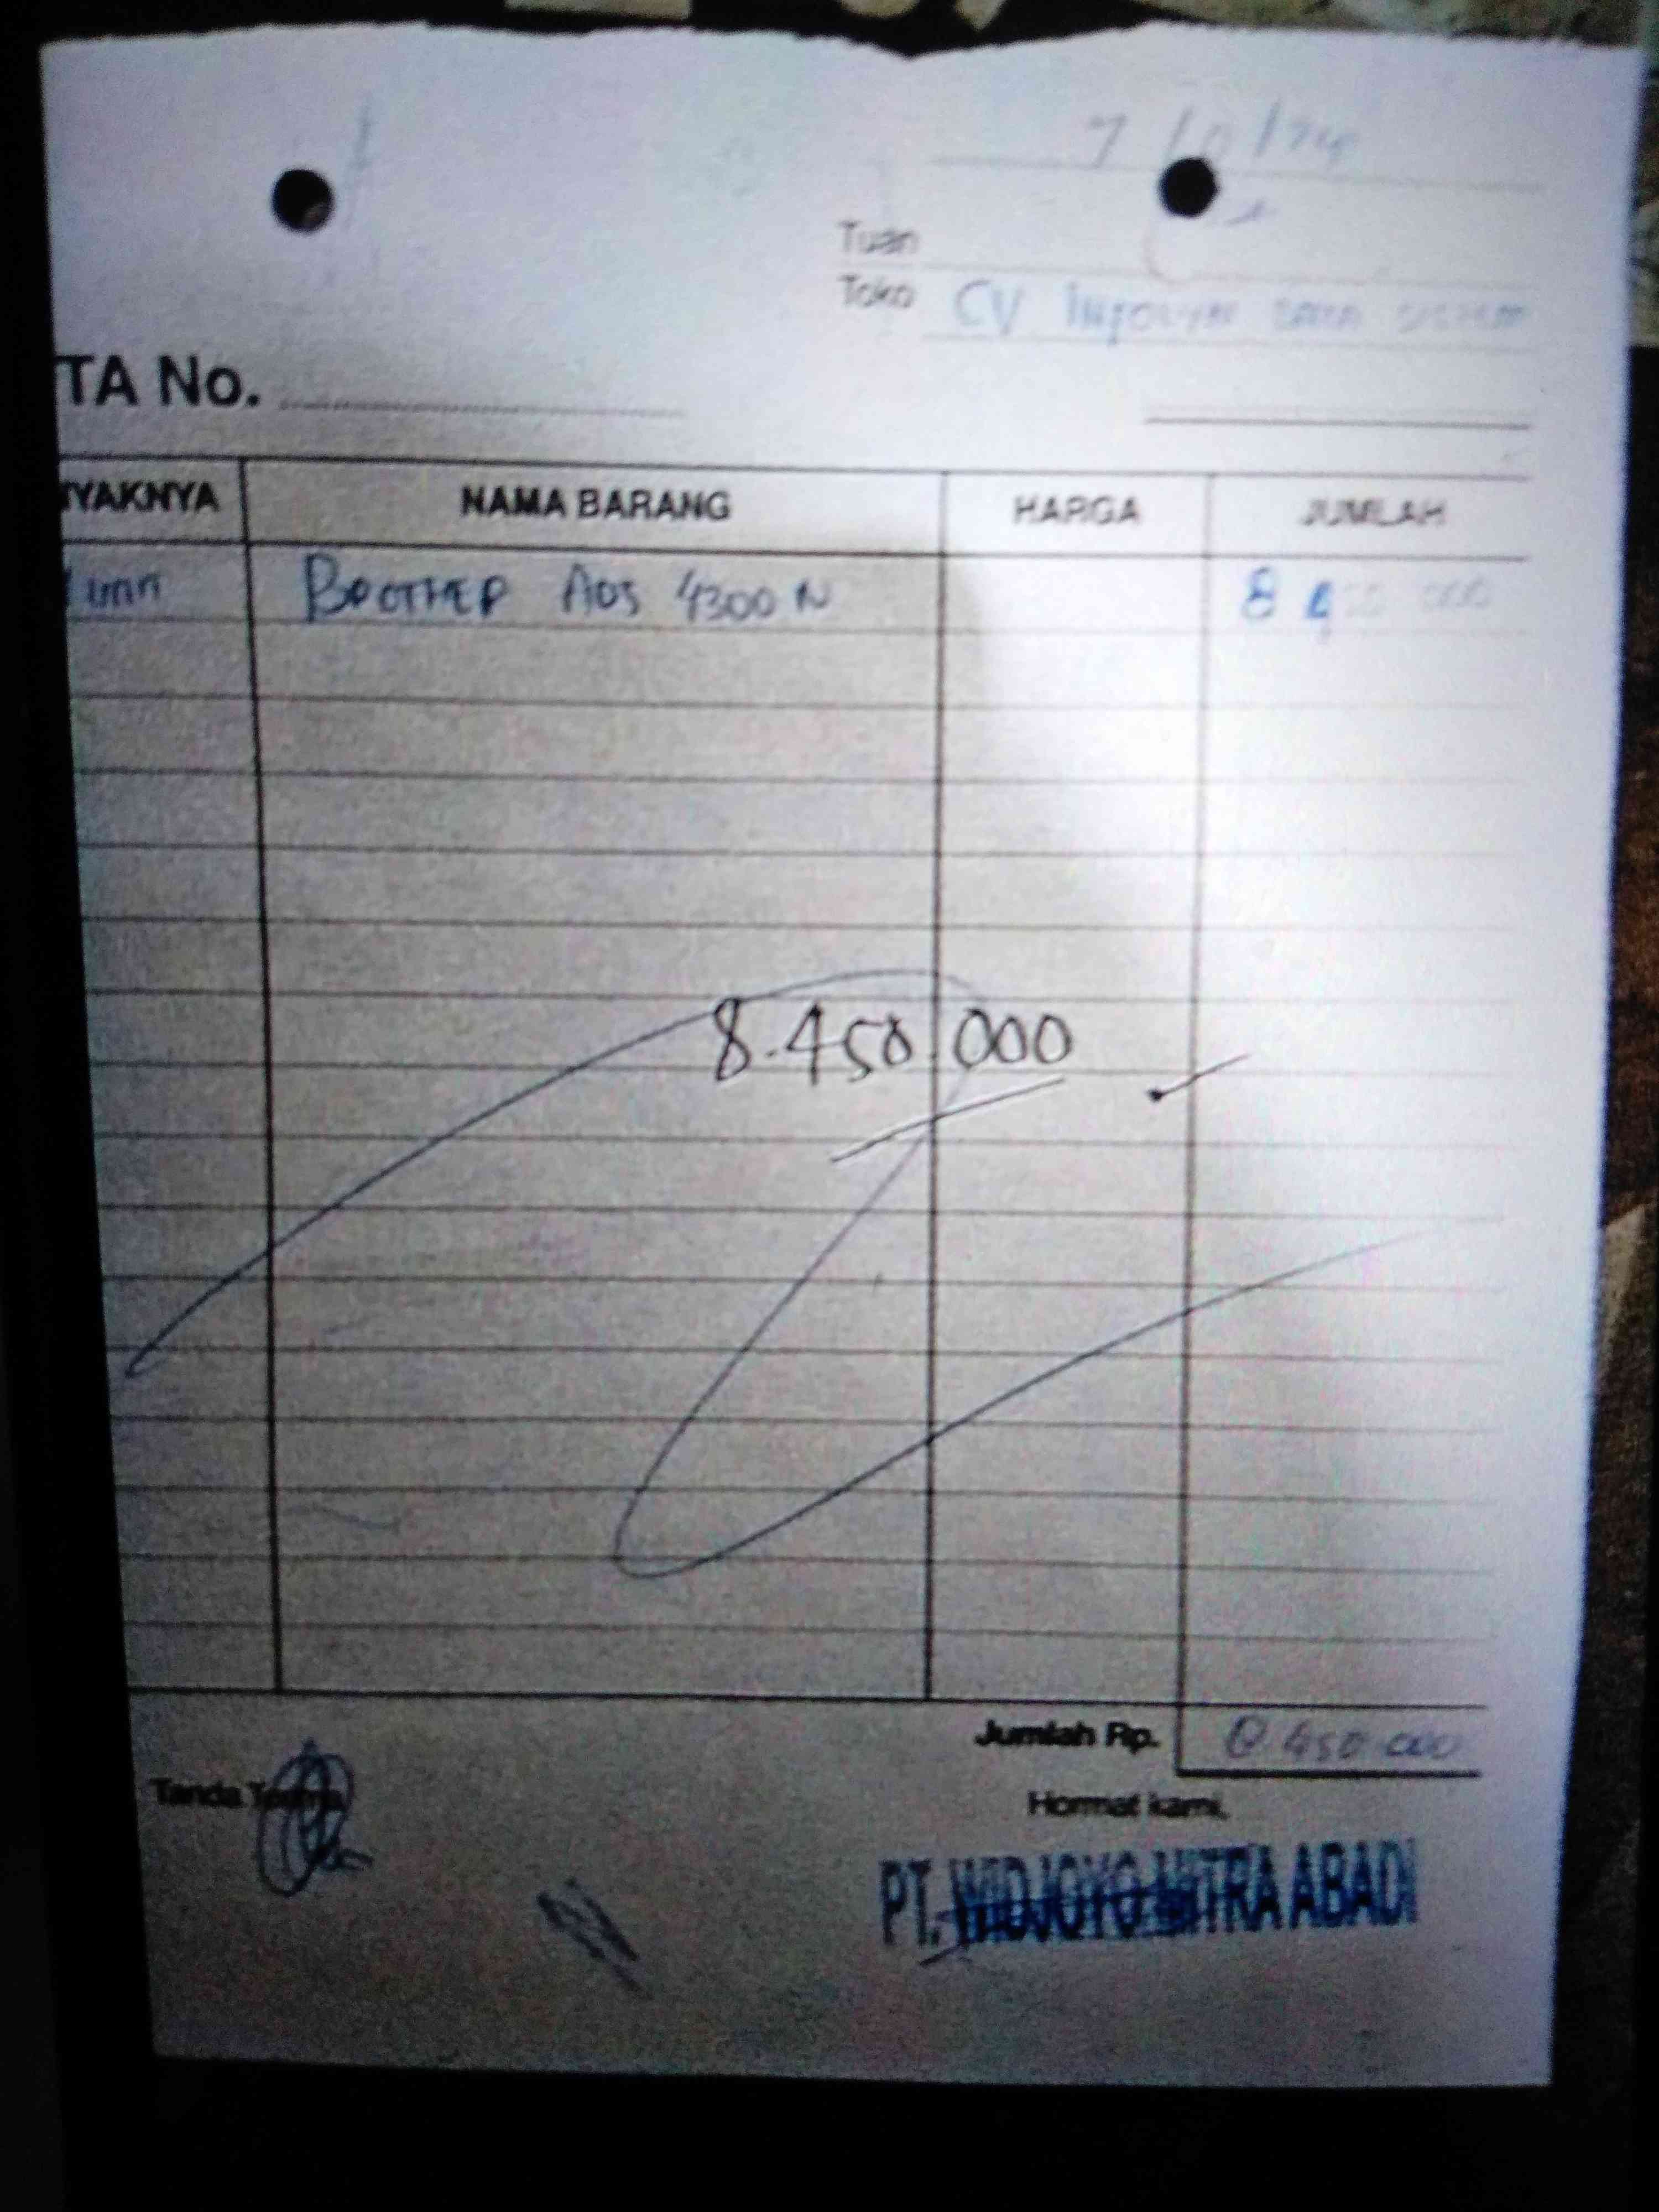 Tuan
Toko CV
TA No.
NYAKNYA NAMA BARANG HARGA JUMLAH
unit BROTHER ADS 4300 N 8 000
8.450.000
Jumlah Rp. 8 450 000
Tanda Terima Hormat kami,
PT. WIDJOYO MITRA ABADI